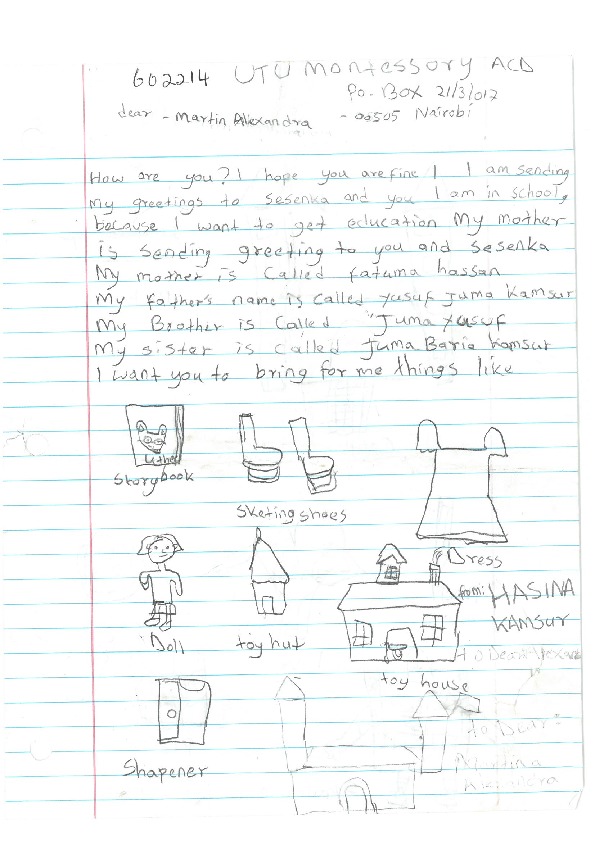 602214 UTU Montessory ACD
Po. BOX 21/3/017
dear - Martin Alexandra - 00505 Nairobi
How are you? I hope you are fine I I am sending
My greetings to Sesenka and you I am in school,
because I want to get education My mother
is sending greeting to you and sesenka
My mother is Called fatuma hassan
My father's name is called Yusuf Juma Kamsur
My Brother is Called "Juma Yusuf
My sister is Called Juma Baria Kamsur
I want you to bring for me things like
Storybook
Sketing shoes
Dress
from: HASINA
KAMSUR
Doll
toy hut
to Dear
toy house
to Dear:
Shapener